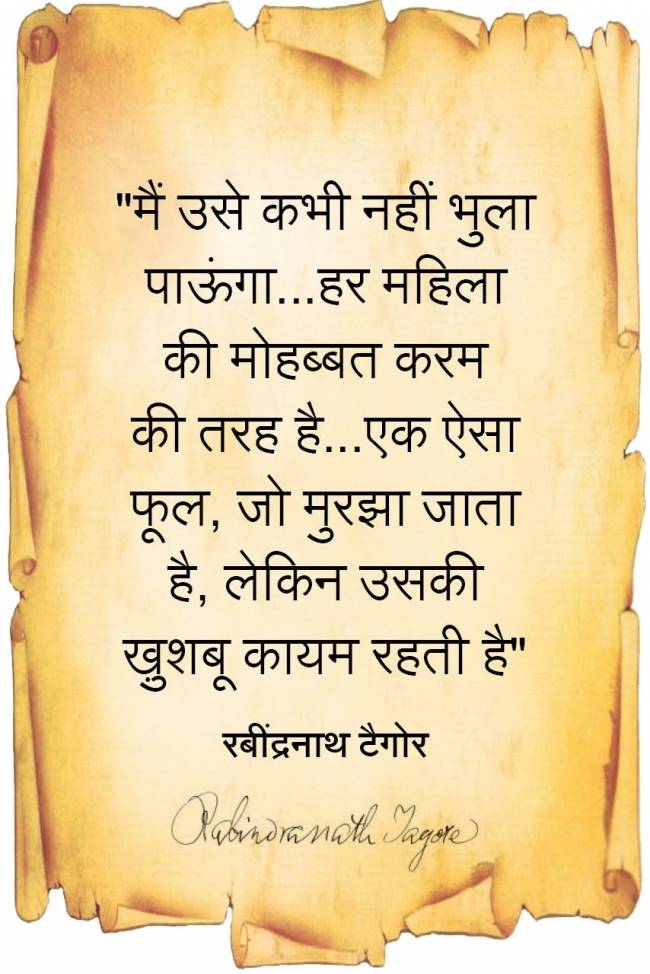 "मैं उसे कभी नहीं भुला
पाऊंगा...हर महिला
की मोहब्बत करम
की तरह है...एक ऐसा
फूल, जो मुरझा जाता
है, लेकिन उसकी
ख़ुशबू कायम रहती है"
रबींद्रनाथ टैगोर
Rabindranath Tagore